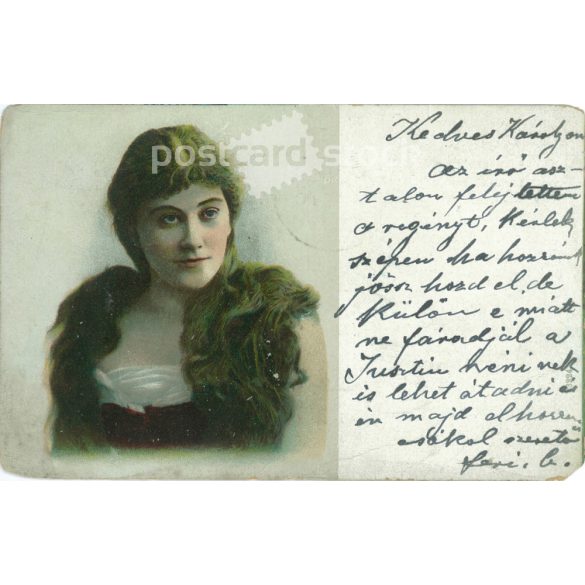 postcard stock
Kedves Károlyom
az író asz-
talon felejtettem
a regényt, Kérlek
szépen ha hozzánk
jössz hozd el, de
külön e miatt
ne fáradjál a
Jusztin néninek
is lehet átadni és
én majd elhozom
csókol szerető
feri. b.